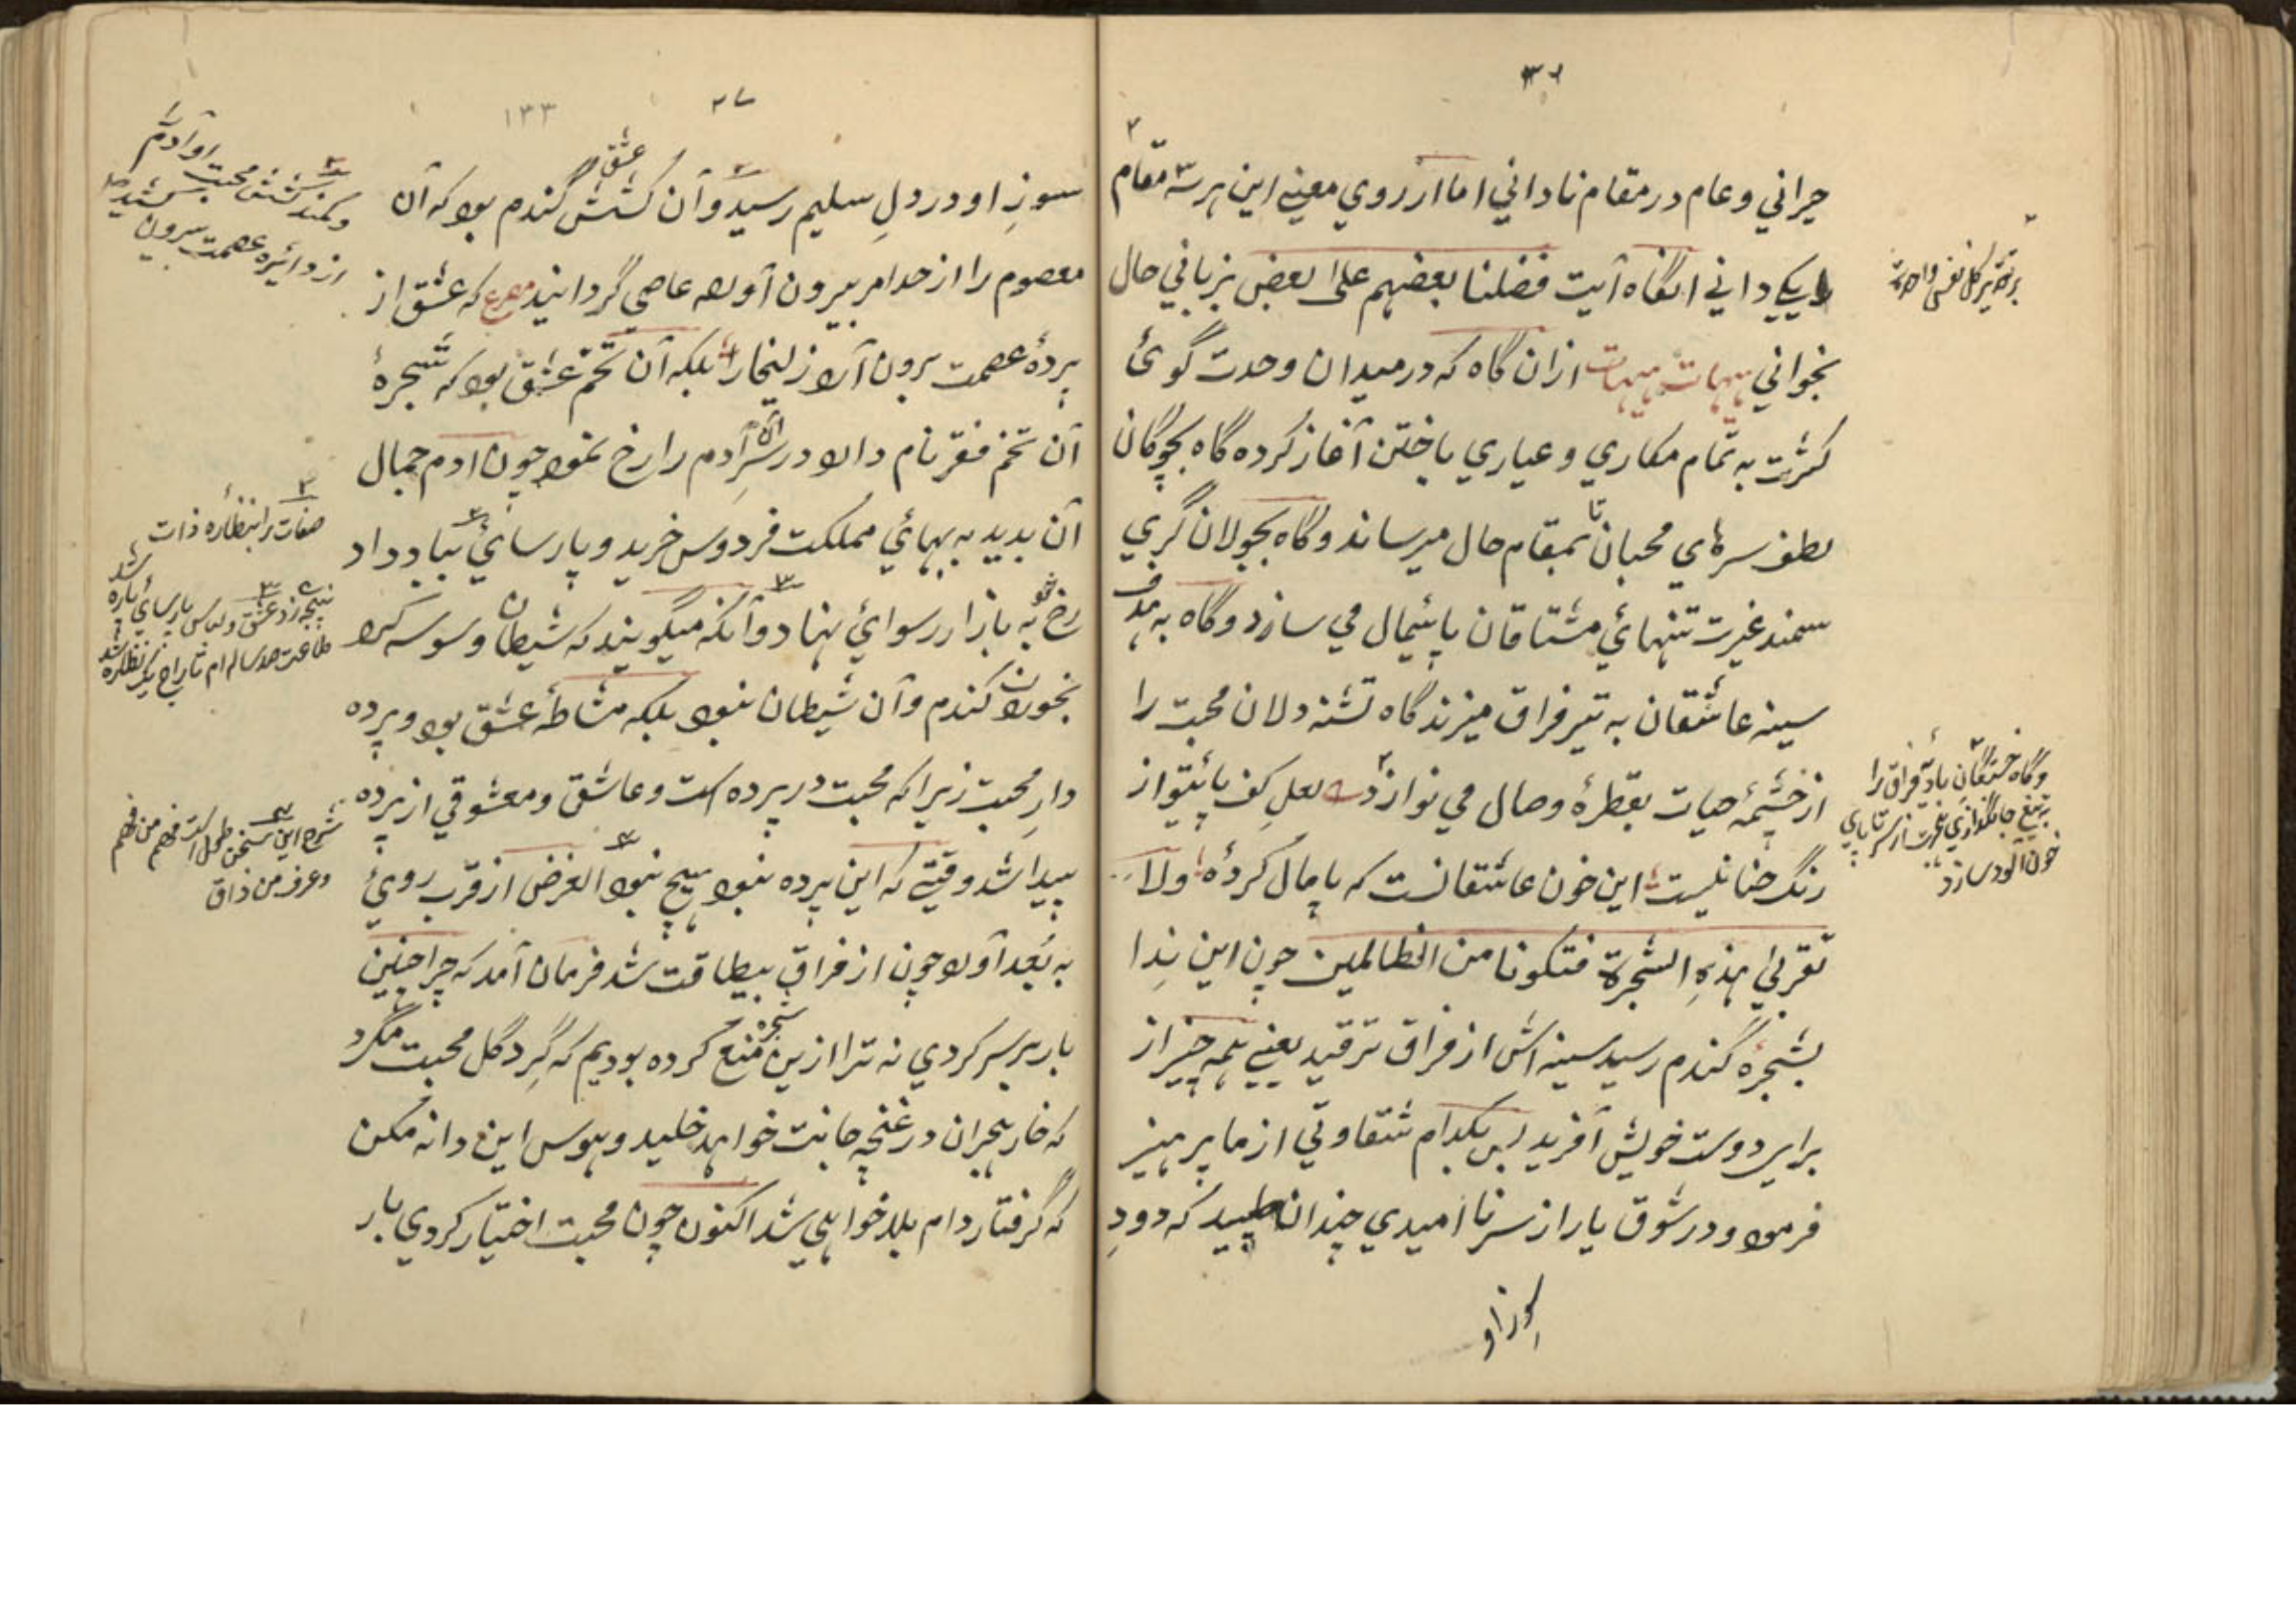 حیراني و عام در مقام ناداني اما از روي معنے این هر سه مقام
را یکے داني انگاه آیت فضلنا بعضهم علی بعض بزباني حال
بخواني هیهات هیهات ازان گاه که در میدان وحدت گوئ
کثرت به تمام مکاري و عیاري باختن آغاز کرده گاه بچوگان
لطف سرهاي محبان تا بمقام حال میرساند و گاه بجولان گري
سمند غیرت تنهائ مشتاقان پائیمال مي سازد و گاه به هدف
سینه عاشقان به تیر فراق میزند گاه تشنه دلان محبت را
از چشمهٔ حیات بقطرهٔ وصال مي نوازد لعل کف پائیتو از
رنگ حنا نیست این خون عاشقانست که پامال کردهٔ ولا
تقربا هذهِ الشجرة فتکونا من الظالمین چون این نِدا
بشجرهٔ گندم رسید سینه اش از فراق ترقید یعنے همه چیز از
براي دوست خویش آفرید پس بکدام شقاوتي از ما پرهیز
فرمود و در شوق یار از سر نا امیدي چندان طپید که دودِ
سوز او
و گاه خستگان بادیهٔ فراق را
خون آلود سازد
۱۳۳
سوزِ او در دلِ سلیم رسید و آن کشش عشق گندم بود که آن
معصوم را از حد امر بیرون آورد عاصي گردانید مصرع که عشق از
پردهٔ عصمت برون آرد زلیخا را بلکه آن تخم عشق بود که شجرهٔ
آن تخم فقر نام دارد در سَرِ آدم را رخ نمود چون ادم جمال
آن بدید به بهائ مملکت فردوس خرید و پارسائ بباد داد
رخ خود به بازار رسوائ نهاد و آنکه میگویند که شیطان وسوسه کرد
بخوردن گندم و آن شیطان نبود بلکه مشاطهٔ عشق بود و پرده
دارِ محبت زیرا که محبت در پرده است و عاشق و معشوقي از پرده
پیدا شد وقتے که این پرده نبود هیچ نبود الغرض از قرب روئ
به بُعد آورد چون از فراق بیطاقت شد فرمان آمد که چرا چنین
بار بر سر کردي نه ترا ازین شجره منع کرده بودیم که گِرد گل محبت مگرد
که خار هجران در غنچه جانت خواهد خلید و هوس این دانه مکن
که گرفتار دام بلا خواهي شد اکنون چون محبت اختیار کردي بار
و کمند کشش محبت او آدم را
از دائره عصمت بیرون کشید
صفات را بنظاره ذات
شرح این سخن طول است فهم من فهم
و عرف من ذاق